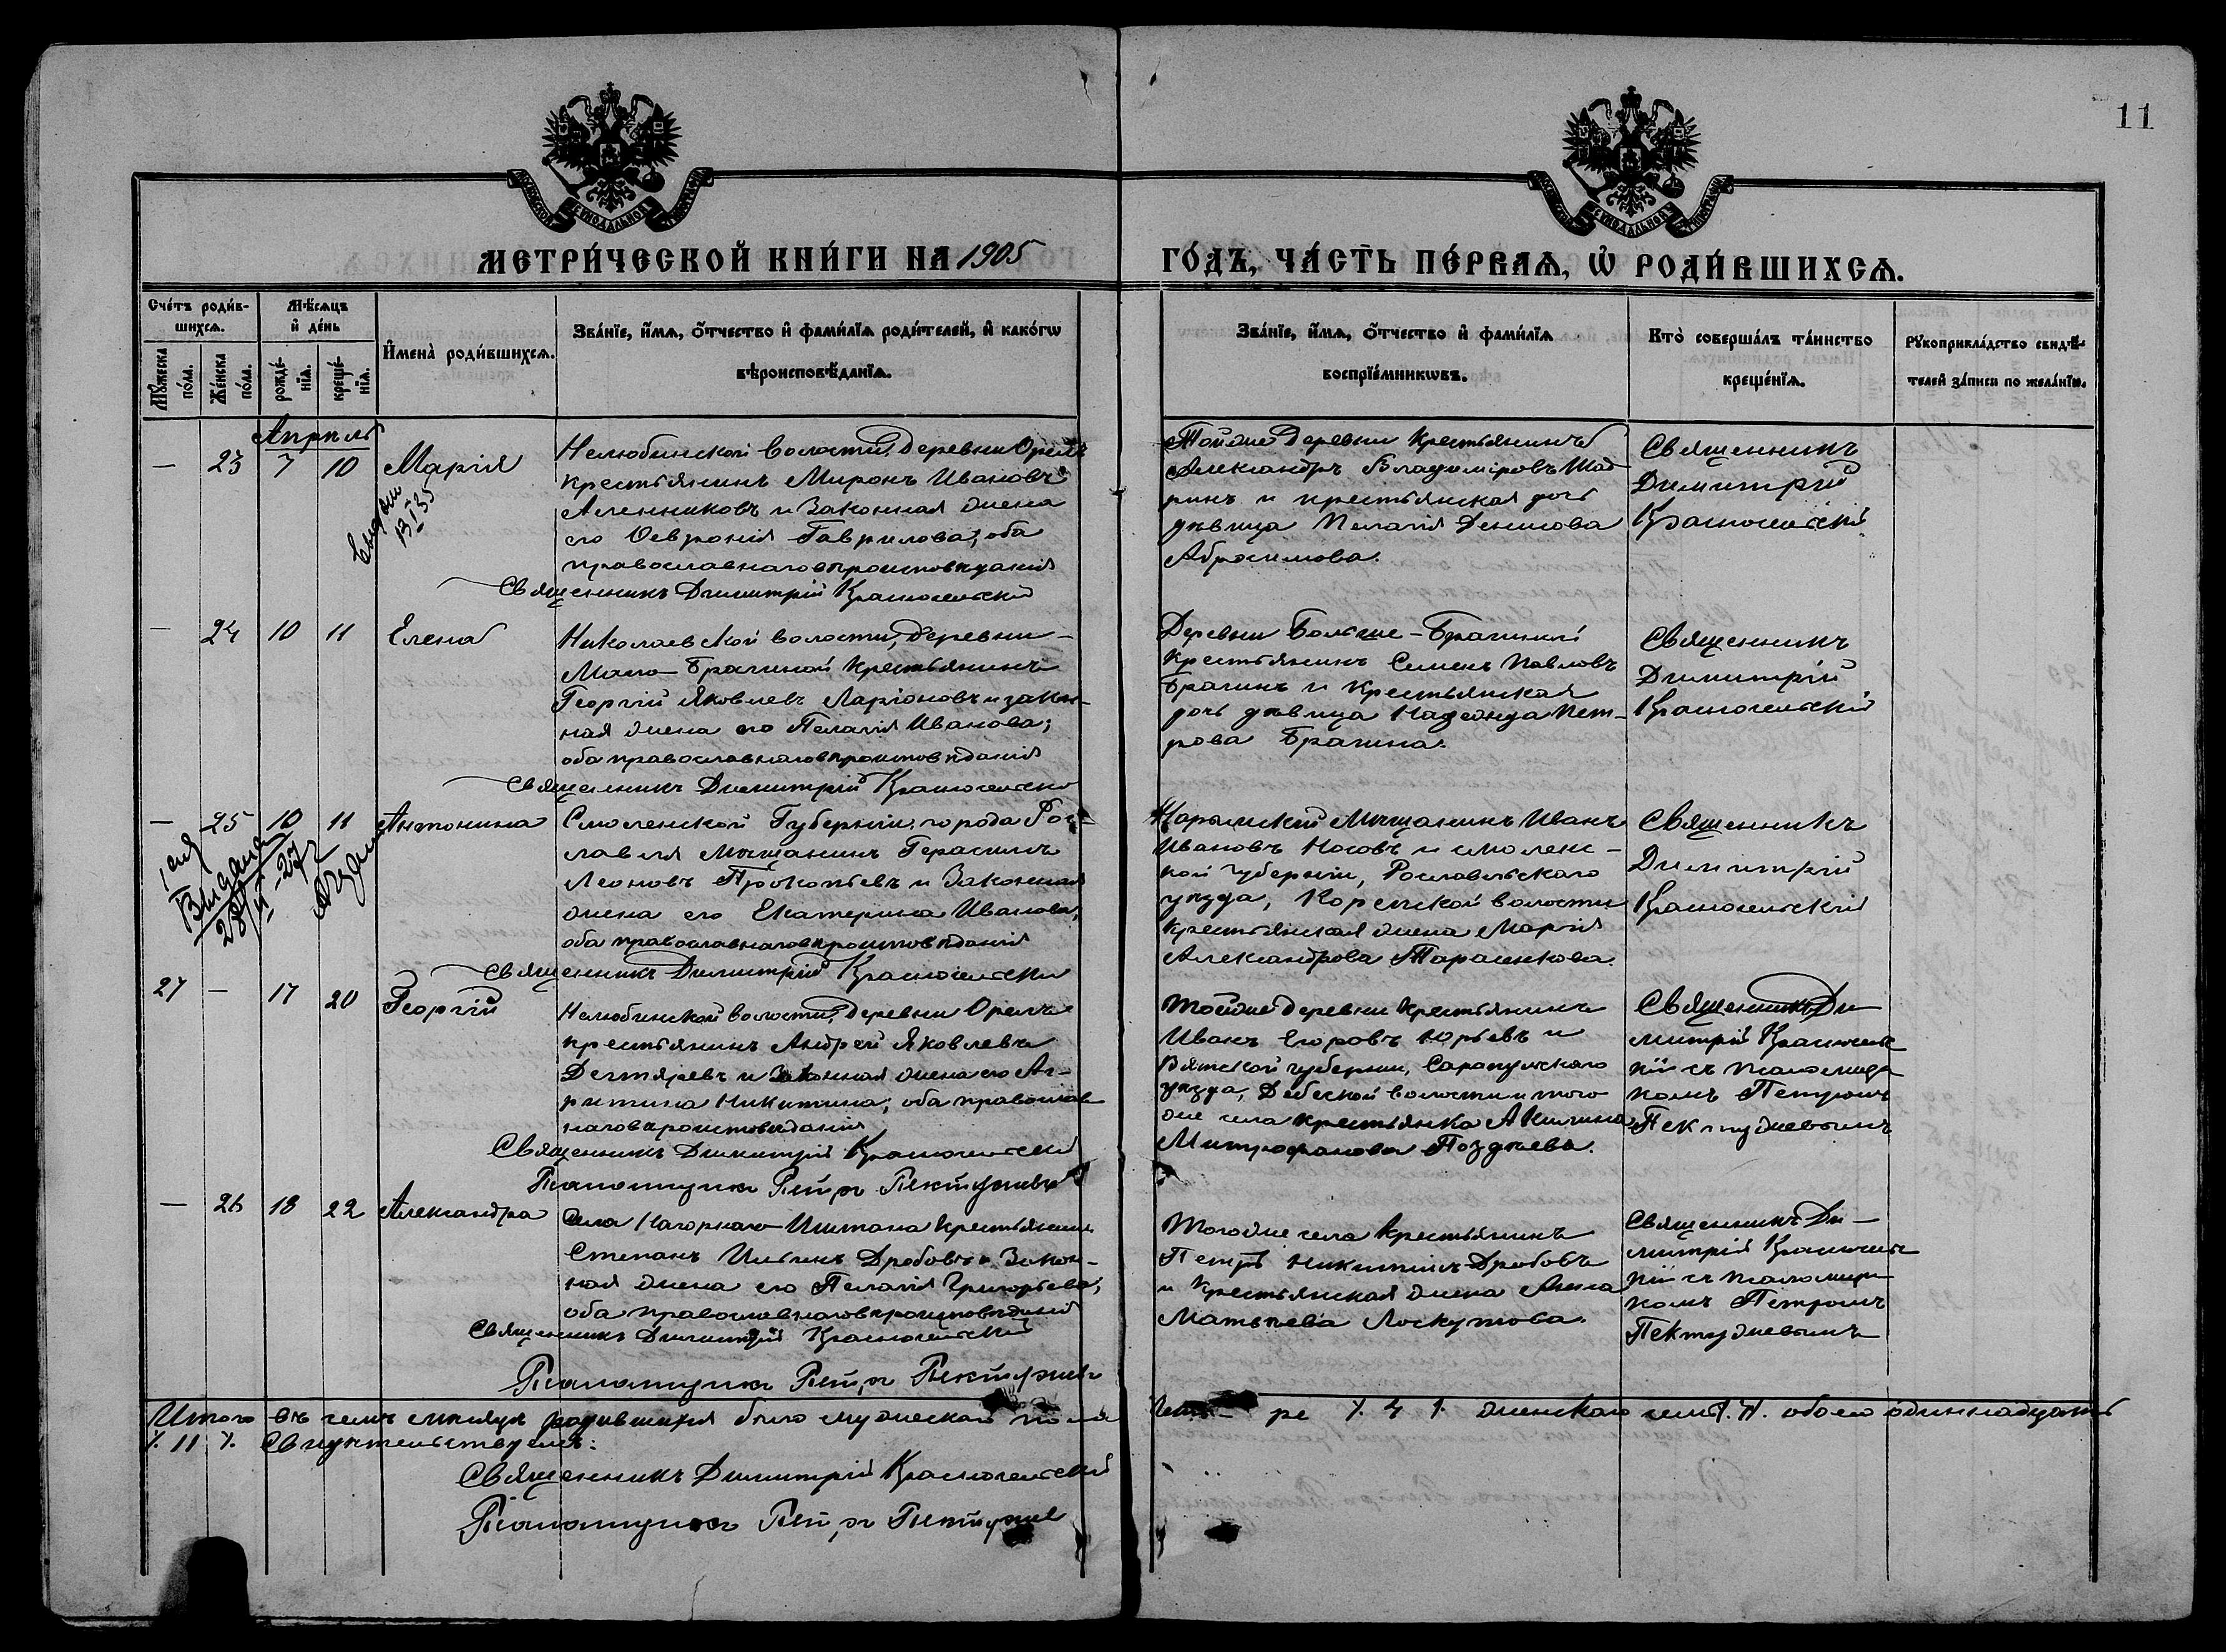 11
МЕТРИ́ЧЕСКОЙ КНИ́ГИ НА 1905
ГО́ДЪ, ЧА́СТЬ ПЕ́РВАѦ, Ѽ РОДИ́ВШИХСѦ.
Сче́тъ роди́в-
шихсѧ.
Мѣ́сѧцъ
и́ де́нь
Мꙋ́жеска
по́ла.
Же́нска
по́ла.
рожде́-
нїѧ.
креще́-
нїѧ.
И҆мена̀ роди́вшихсѧ.
Зва́нїе, и҆́мѧ, о҆́тчество и҆ фами́лїѧ роди́телей, и҆ како́гѡ
вѣроисповѣ́данїѧ.
Зва́нїе, и҆́мѧ, о҆́тчество и҆ фами́лїѧ
воспрїе́мникѡвъ.
Кто̀ соверша́лъ та́инство
креще́нїѧ.
Рꙋкоприкла́дство свидѣ́-
телей за́писи по жела́нїю.
Апрѣль
— 23 7 10 Марія
Нелюбинской волости, деревни Орелъ
крестьянинъ Миронъ Ивановъ
и законная жена
его Ѳевронія Гаврилова; оба
православнаго вѣроисповѣданія
Священникъ Димитрій
Тойже деревни крестьянинъ
Александръ Владиміровъ Шад-
ринъ и крестьянская дочь
дѣвица Пелагія Денисова
Абросимова.
Священникъ
Димитрій
13 I 35
— 24 10 11 Елена
Николаевской волости, деревни
Мало-Брагиной крестьянинъ
Георгій Яковлевъ Ларіоновъ и закон-
ная жена его Пелагія Иванова;
оба православнаго вѣроисповѣданія
Священникъ Димитрій
Деревни Больше-Брагиной
крестьянинъ Семенъ Павловъ
Брагинъ и крестьянская
дочь дѣвица Надежда Пет-
рова Брагина.
Священникъ
Димитрій
— 25 10 11 Антонина
Смоленской губерніи, города Рос-
лавля мѣщанинъ Герасимъ
Леоновъ Прокопьевъ и законная
жена его Екатерина Иванова;
оба православнаго вѣроисповѣданія
Священникъ Димитрій
Нарымскій мѣщанинъ Иванъ
Ивановъ Носовъ и смолен-
кой губерніи, Рославльскаго
уѣзда, волости
крестьянская жена Марія
Александрова Тарасенкова.
Священникъ
Димитрій
Выдана
27 — 17 20 Георгій
Нелюбинской волости, деревни Орелъ
крестьянинъ Андрей Яковлевъ
Дегтяревъ и законная жена его Аг-
рипина Никитина; оба православ-
наго вѣроисповѣданія
Священникъ Димитрій
Псаломщикъ Петръ
Тойже деревни крестьянинъ
Иванъ Егоровъ Юрьевъ и
Вятской губерніи, Сарапульскаго
уѣзда, Дебеской волости и того
же села крестьянка Акилина
Митрофанова Поздѣева.
Священникъ Ди-
митрій
кій съ псаломщи-
комъ Петромъ
— 26 18 22 Александра
Села Нагорнаго Иштана крестьянинъ
Степанъ Ильинъ Дробовъ и закон-
ная жена его Пелагія Григорьева;
оба православнаго вѣроисповѣданія
Священникъ Димитрій
Псаломщикъ Петръ
Тогоже села крестьянинъ
Петръ Никитинъ Дробовъ
и крестьянская жена Анна
Матвѣева Лоскутова.
Священникъ Ди-
митрій
кій съ псаломщи-
комъ Петромъ
Итого въ семъ мѣсяцѣ родившихся было мужескаго пола
четыре ./. 4 ./. женскаго семь ./. 7 ./. обоего одиннадцать
./. 11 ./. Свидѣтельствуемъ:
Священникъ Димитрій
Псаломщикъ Петръ